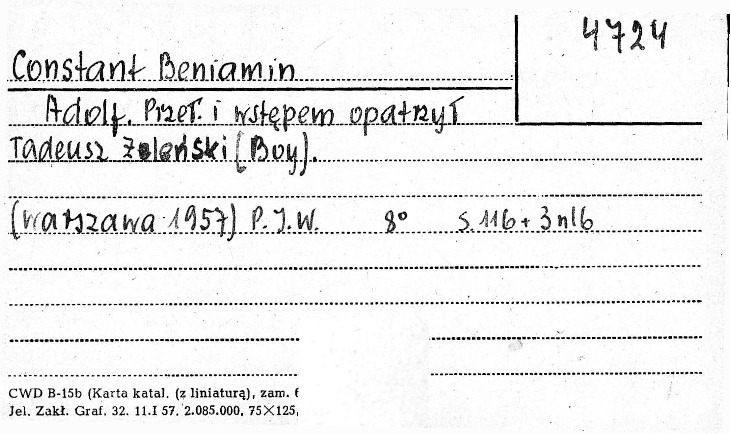 4724
Constant Beniamin
Adolf. Przeł. i wstępem opatrzył
Tadeusz Żeleński (Boy).
(Warszawa 1957) P.I.W. 8° s. 116 + 3 nlb
CWD B-15b (Karta katal. (z liniaturą), zam.
Jel. Zakł. Graf. 32. 11.I 57. 2.085.000. 75×125,